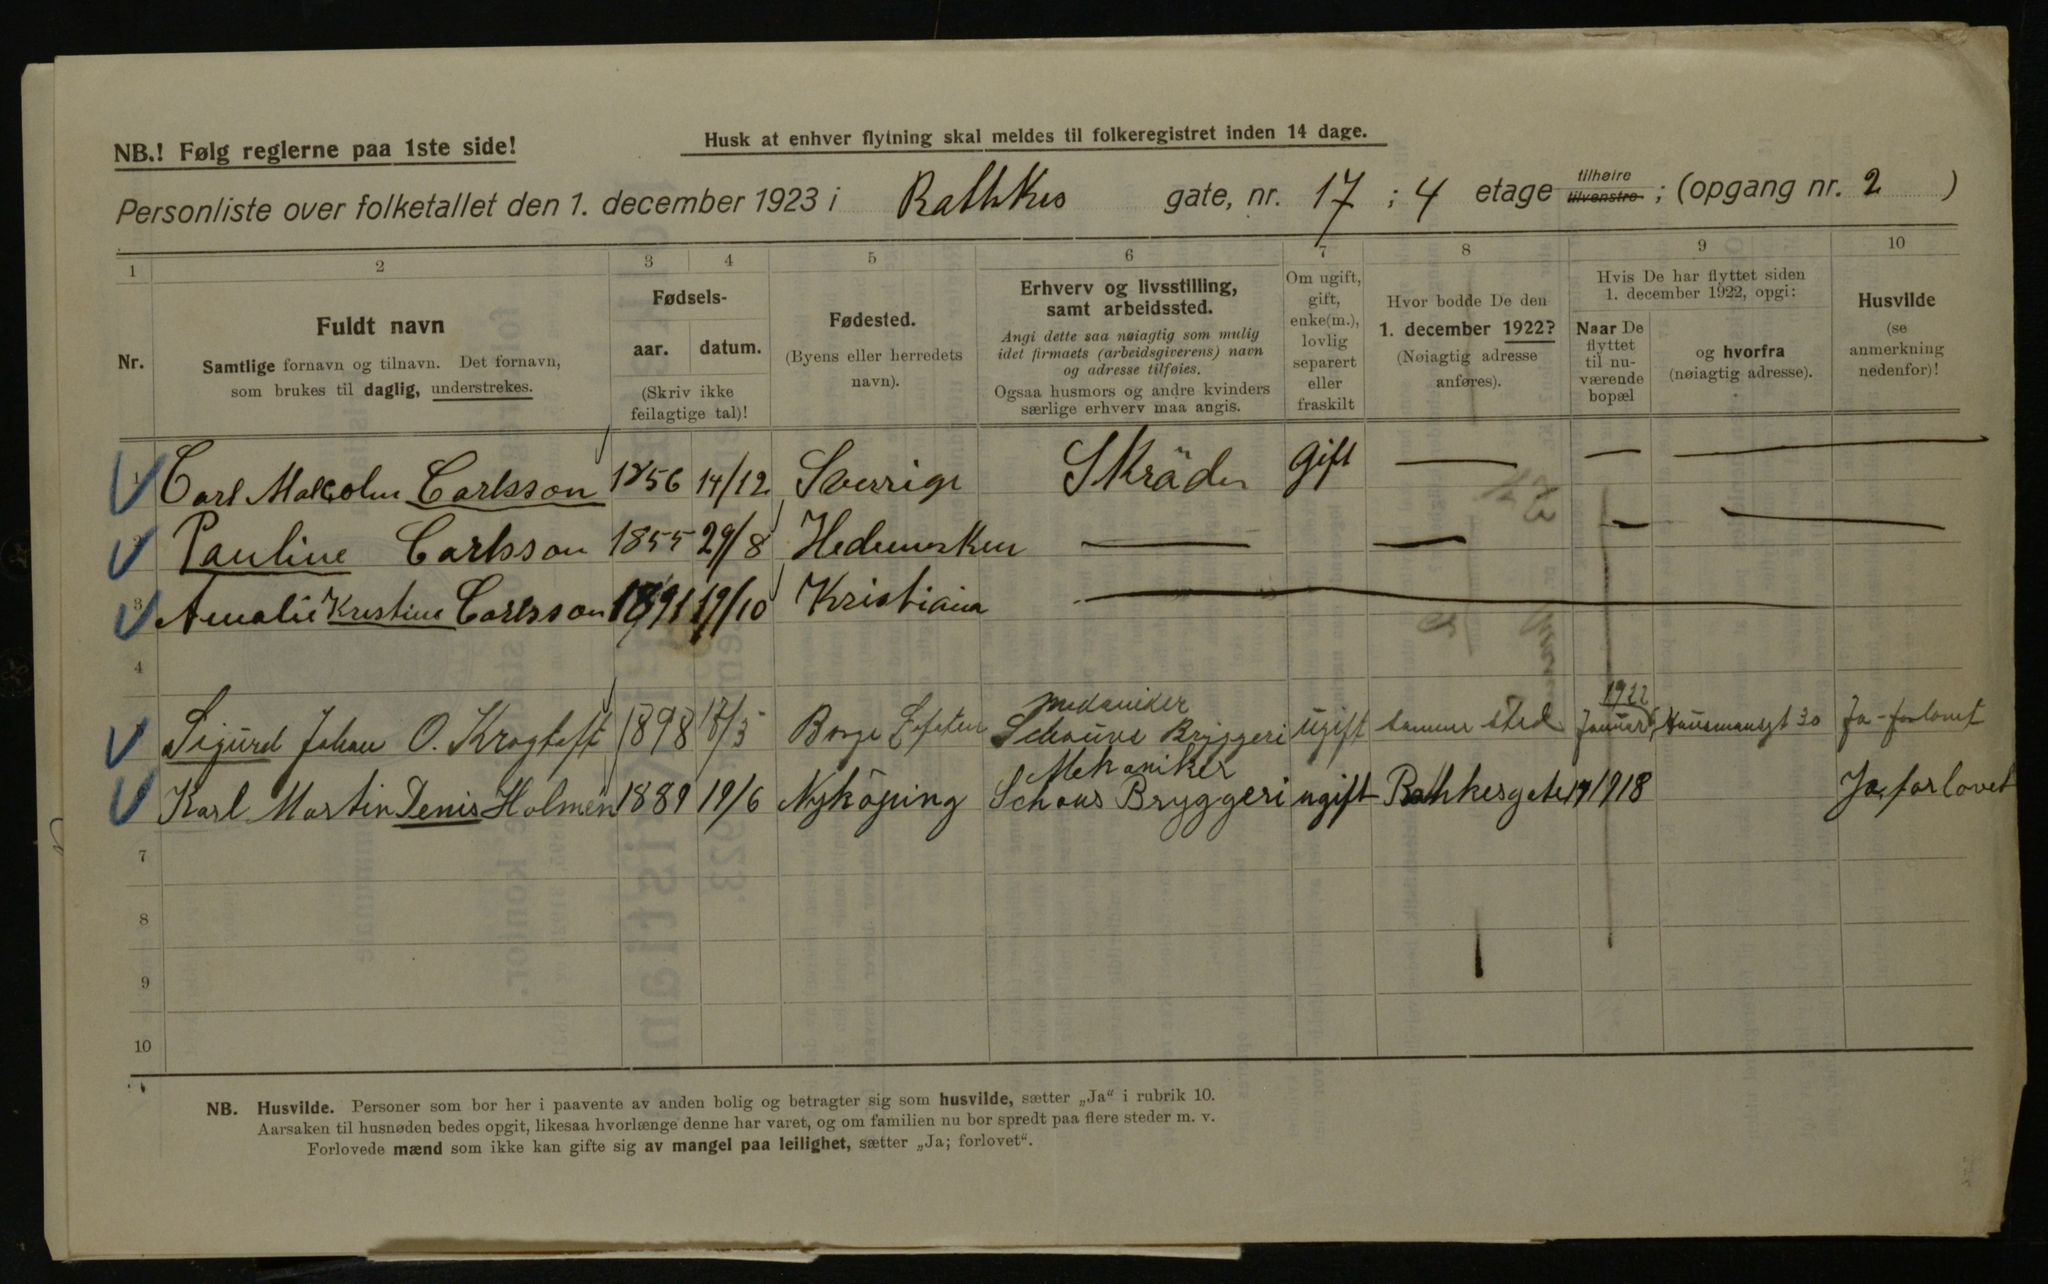 NB.! Følg reglerne paa 1ste side!
Husk at enhver flytning skal meldes til folkeregistret inden 14 dage.
Personliste over folketallet den 1. december 1923 i Rathkes gate, nr. 17 ; 4 etage tilhøire tilvenstre ; (opgang nr. 2 )
1 2 3 4 5 6 7 8 9 10
Nr.
Fuldt navn
Samtlige fornavn og tilnavn. Det fornavn,
som brukes til daglig, understrekes.
Fødsels-
aar. datum.
(Skriv ikke
feilagtige tal)!
Fødested.
(Byens eller herredets
navn).
Erhverv og livsstilling,
samt arbeidssted.
Angi dette saa nøiagtig som mulig
idet firmaets (arbeidsgiverens) navn
og adresse tilføies.
Ogsaa husmors og andre kvinders
særlige erhverv maa angis.
Om ugift,
gift,
enke(m.),
lovlig
separert
eller
fraskilt
Hvor bodde De den
1. december 1922?
(Nøiagtig adresse
anføres).
Hvis De har flyttet siden
1. december 1922, opgi:
Naar De
flyttet
til nu-
værende
bopæl
og hvorfra
(nøiagtig adresse).
Husvilde
(se
anmerkning
nedenfor)!
1 Carl Malcolm Carlsson 1856 14/12 Sverrige Skräder Gift — — —
2 Pauline Carlsson 1855 29/8 Hedemarken — — — —
3 Amalie Kristine Carlsson 1891 19/10 Kristiania —
4
Sigurd Johan O. 1898 /5 Borge mekaniker Schouus Bryggeri ugift samme sted 1922 Januar Hausmansgt 30 Ja - forlovet
Karl Martin Denis Holmén 1889 19/6 Nyköping Mekaniker Schous Bryggeri ugift Rathkesgate 17 1918 Ja, forlovet
7
8
9
10
NB. Husvilde. Personer som bor her i paavente av anden bolig og betragter sig som husvilde, sætter „Ja“ i rubrik 10.
Aarsaken til husnøden bedes opgit, likesaa hvorlænge denne har varet, og om familien nu bor spredt paa flere steder m. v.
Forlovede mænd som ikke kan gifte sig av mangel paa leilighet, sætter „Ja; forlovet“.